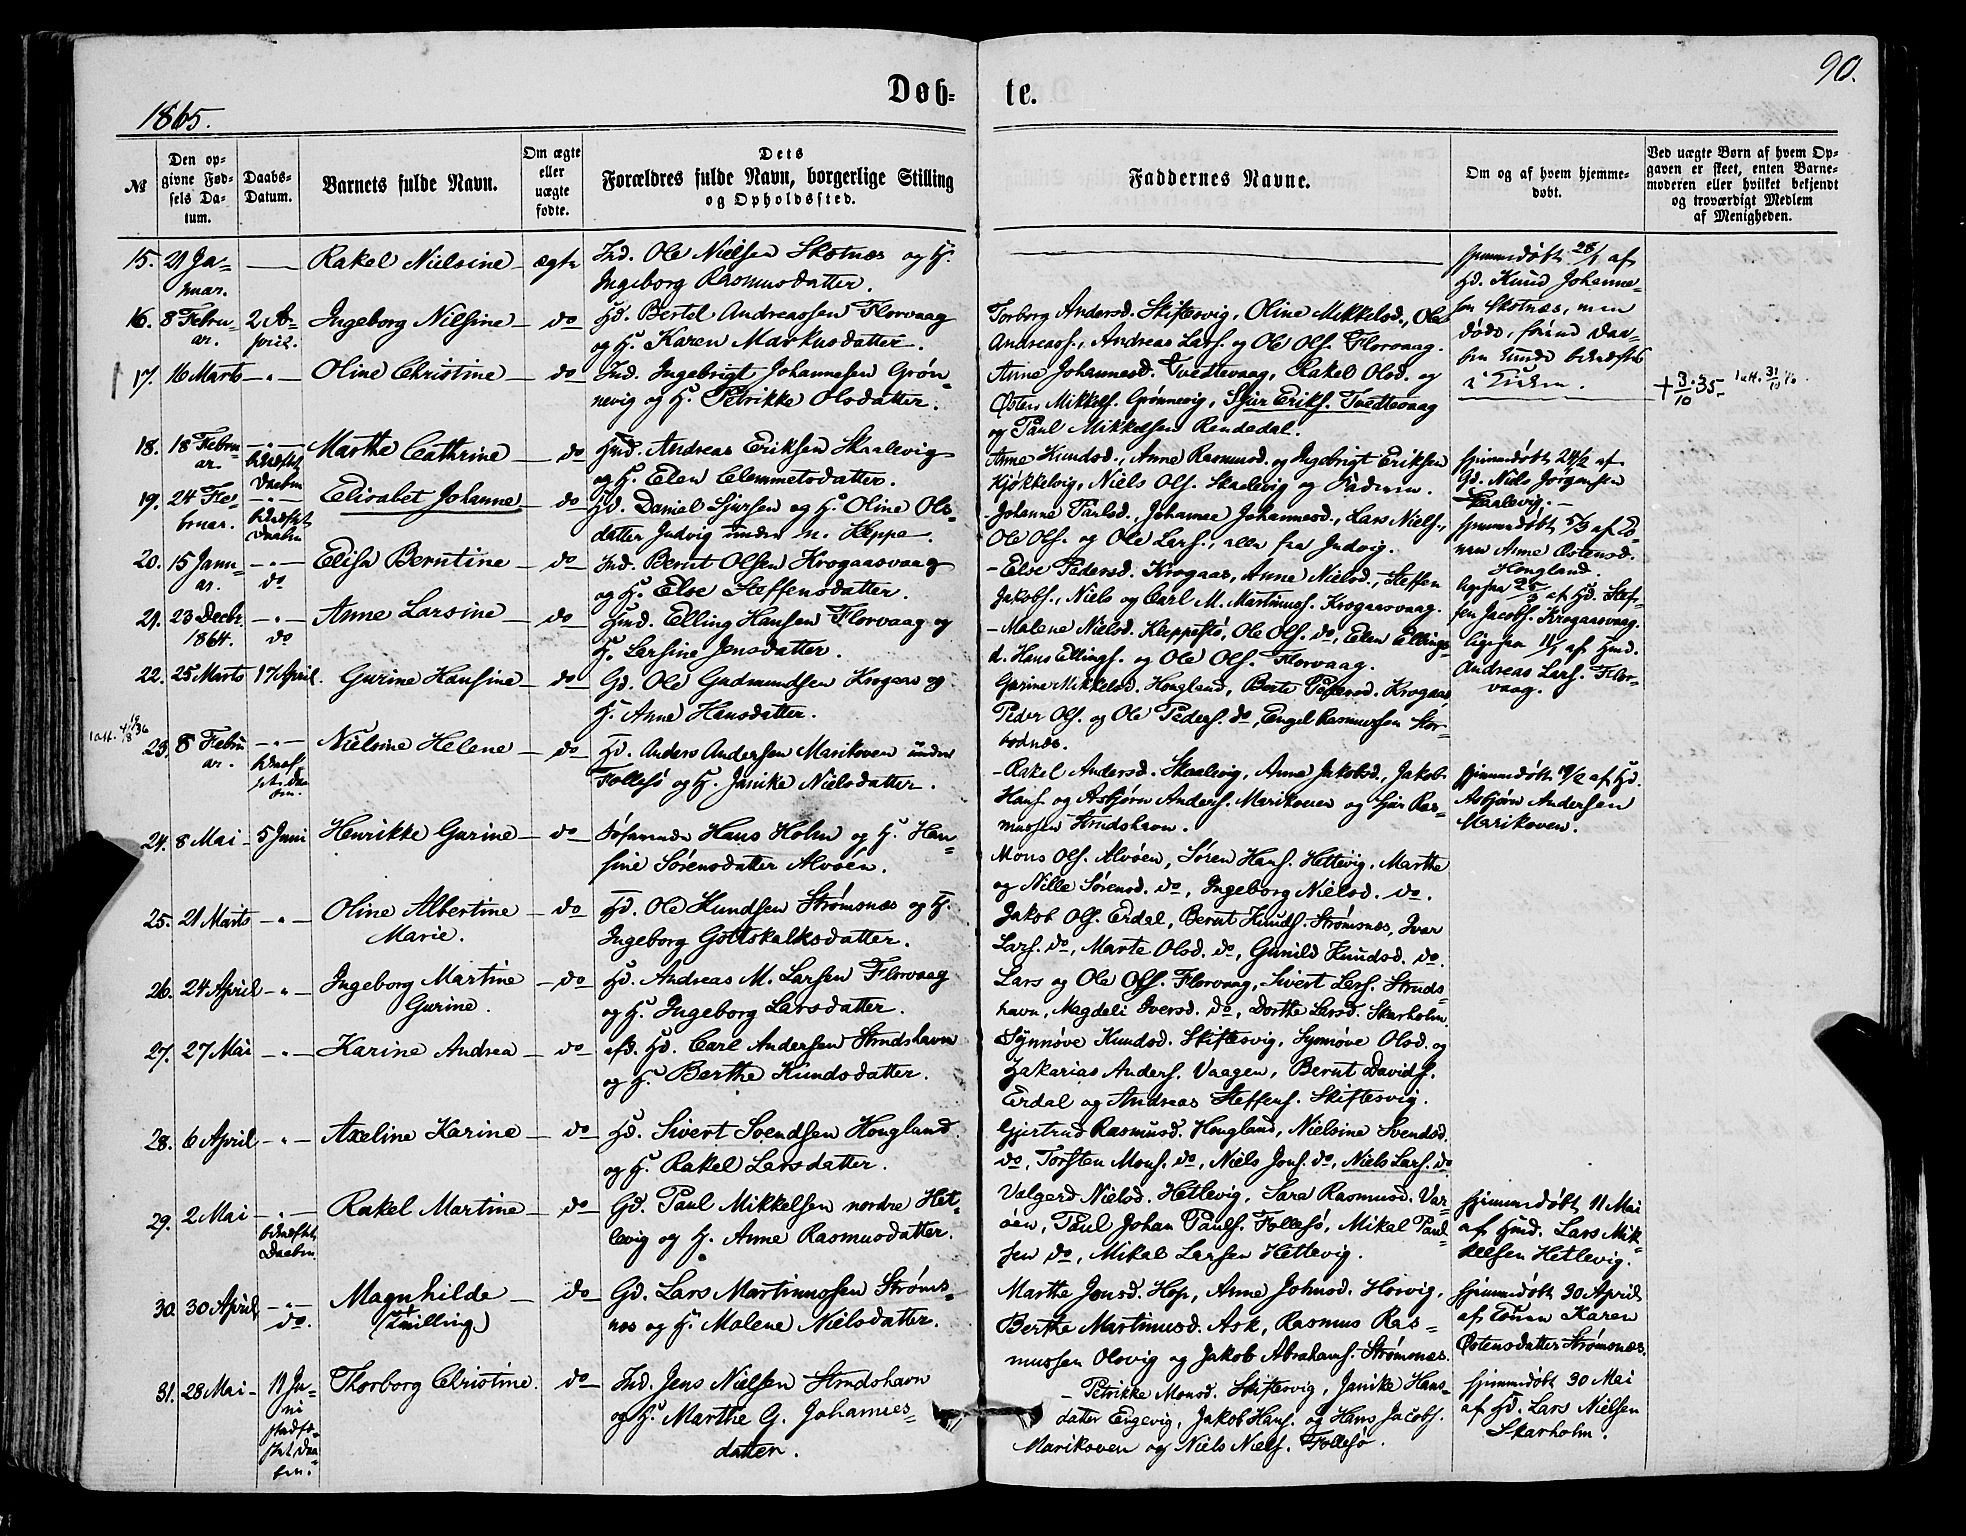 90.
Døb-
te.
1865.
№
Den op-
givne Fød-
sels Da-
tum.
Daabs-
Datum.
Barnets fulde Navn.
Om ægte
eller
uægte
fødte.
Dets
Forældres fulde Navn, borgerlige Stilling
og Opholdssted.
Faddernes Navne.
Om og af hvem hjemme-
døbt.
Ved uægte Børn af hvem Op-
gaven er skeet, enten Barne-
moderen eller hvilket bekjendt
og troværdigt Medlem
af Menigheden.
15. 21 Ja-
nuar.
Rakel Nielsine
ægte
Ind. Ole Nielsen Skotnæs og H.
Ingeborg Rasmusdatter.
hjemmedøbt 28/1 af
Hd. Knud Johanne-
sen Skotnæs, men
døde, førend Daa-
ben kunde bekræftes
i Kirken.
16. 8 Febru-
ar.
2 A-
pril.
Ingeborg Nilsine
do
Hd. Bertel Andreassen Florvaag
og H. Karen Markusdatter.
Torborg Andersd. Skiftesvig, Oline Mikkelsd., Ole
Andreass., Andreas Lars. og Ole Ols. Florvaag.
17. 16 Marts
Oline Christine
do
Ind. Ingebrigt Johannesen Grøn-
nevig og H. Petrikke Olsdatter.
Anne Johannesd. Tvedtevaag, Rakel Olsd. og
Østen Mikkels. Grønnevig, Sjur Eriks. Tvedtevaag
og Paul Mikkelsen Rendedal.
+ 3/10 35 1 att. 31/10
18. 18 Febru-
ar.
bekræftet
Daaben
Marthe Cathrine
do
Hmd. Andreas Eriksen Skaalevig
og H. Elen Clemmetsdatter.
Anne Knudsd., Anne Rasmusd. og Ingebrigt Eriksen
Kjøkkelvig, Niels Ols. Skaalevig og Faderen.
hjemmedøbt 24/2 af
Gd. Niels Jørgensen
Skaalevig.
19. 24 Fe-
bruar.
bekræftet
Daaben
Elisabet Johanne
do
Hd. Daniel Sjursen og H. Oline Ols-
datter Judvig under n. Kleppe.
Johanne Carlsd., Johanne Johannesd., Lars Niels.,
Ole Ols. og Ole Lars., alle fra Judvig.
hjemmedøbt 5/3 af Ko-
nen Anne Østensd.
Hougland.
20. 15 Janu-
ar.
do
Elisa Berntine
do
Ind. Bernt Olsen Krogaasvaag
og H. Else Steffensdatter.
- Else Pedersd. Krogaas, Anne Nielsd., Steffen
Jakobs., Niels og Carl M. Martinus. Krogaasvaag.
ligesaa 25/3 af Hd. Stef-
fen Jacobs. Krogaasvaag.
21. 23 Decbr.
1864.
do
Anne Larsine
do
Hmd. Elling Hansen Florvaag og
H. Larsine Jensdatter.
- Malene Nielsd. Kleppestø, Ole Ols. do, Elen Ellings-
d. Hans Ellings. og Ole Ols. Florvaag.
ligesaa 11/1 af Hmd.
Andreas Lars. Flor-
vaag.
22. 25 Marts
17 April.
Gurine Hansine
do
Gd. Ole Gudmundsen Krogaas og
H. Anne Hansdatter.
Gurine Mikkelsd. Hougland, Berte Pedersd. Krogaas,
Peder Ols. og Ole Peders. do, Engel Rasmussen Stor-
bodnæs.
1 att. 4/8 1936
23. 8 Febru
ar.
bekræf-
tet Daa-
ben.
Nielsine Helene
do
Hd. Anders Andersen Marikoven under
Follesø og H. Janike Nielsdatter.
- Rakel Andersd. Skaalevig, Anne Jakobsd., Jakob
Hans. og Asbjørn Anders. Marikoven og Sjur Ras-
mussen Strudshavn.
hjemmedøbt 19/2 af Hd.
Asbjørn Andersen
Marikoven.
24. 8 Mai
5 Juni
Henrikke Gurine
do
Søfarende Hans Holm og H. Han-
sine Sørensdatter Alvøen.
Mons Ols. Alvøen, Søren Hans. Hetlevig, Marthe
og Nille Sørensd. do, Ingeborg Nielsd. do.
25. 21 Marts
Oline Albertine
Marie.
do
Hd. Ole Knudsen Strømsnæs og H.
Ingeborg Gottskalksdatter.
Jakob Ols. Erdal, Bernt Knuds. Strømsnæs, Ivar
Lars. do, Marte Olsd. do, Gunild Knudsd. do.
26. 24 April
Ingeborg Martine
Gurine.
do
Hd. Andreas M. Larsen Florvaag
og H. Ingeborg Larsdatter.
Lars og Ole Ols. Florvaag, Sivert Lars. Struds-
havn, Magdeli Iversd. do, Dorthe Larsd. Skarholm.
27. 27 Mai
Karine Andrea
do
afd. Hd. Carl Andersen Strudshavn
og H. Berthe Knudsdatter.
Synnøve Knudsd. Skiftesvig, Synnøve Olsd. og
Zakarias Anders. Vaagen, Bernt Davids.
Erdal og Andreas Steffens. Skiftesvig.
28. 6 April
Axeline Karine
do
Hd. Sivert Svendsen Hougland
og H. Rakel Larsdatter.
Gjertrud Rasmusd. Hougland, Nielsine Svendsd.
do, Torsten Mons. do, Niels Jons. do, Niels Lars. do
29. 2 Mai
bekræftet
Daaben
Rakel Martine
do
Gd. Paul Mikkelsen nordre Het-
levig og H. Anne Rasmusdatter.
Valgerd Nielsd. Hetlevig, Sara Rasmusd. Var-
øen, Paul Johan Pauls. Follesø, Mikal Paul-
sen do, Mikal Larsen Hetlevig.
hjemmedøbt 11 Mai
af Hmd. Lars Mik-
kelsen Hetlevig.
30. 30 April
do.
Magnhilde
(Tvilling)
do
Gd. Lars Martinussen Strøms-
næs og H. Malene Nielsdatter.
Marthe Jonsd. Hop, Anne Johnsd. Horvig,
Berthe Martinusd. Ask, Rasmus Ras-
mussen Olsvig og Jakob Abrahams. Strømsnæs.
hjemmedøbt 30 April
af Konen Karen
Østensdatter Strømsnæs.
31. 28 Mai
11 Ju-
ni
stadfæ-
stet Daa-
ben.
Thorborg Christine.
do
Ind. Jens Nielsen Strudshavn
og H. Marthe G. Johannes-
datter.
- Petrikke Monsd. Skiftesvig, Janike Hans-
datter Engevig, Jakob Hans. og Hans Jacobs.
Marikoven og Niels Niels. Follesø.
hjemmedøbt 30 Mai
af Hd. Lars Nielsen
Skarholm.